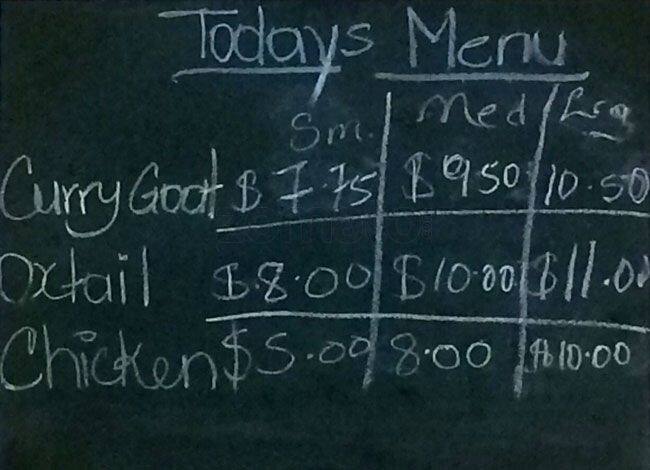 Todays Menu
Sm. Med Lrg
Curry Goat $7.75 $9.50 10.50
Oxtail $8.00 $10.00 $11.00
Chicken $5.00 8.00 $10.00